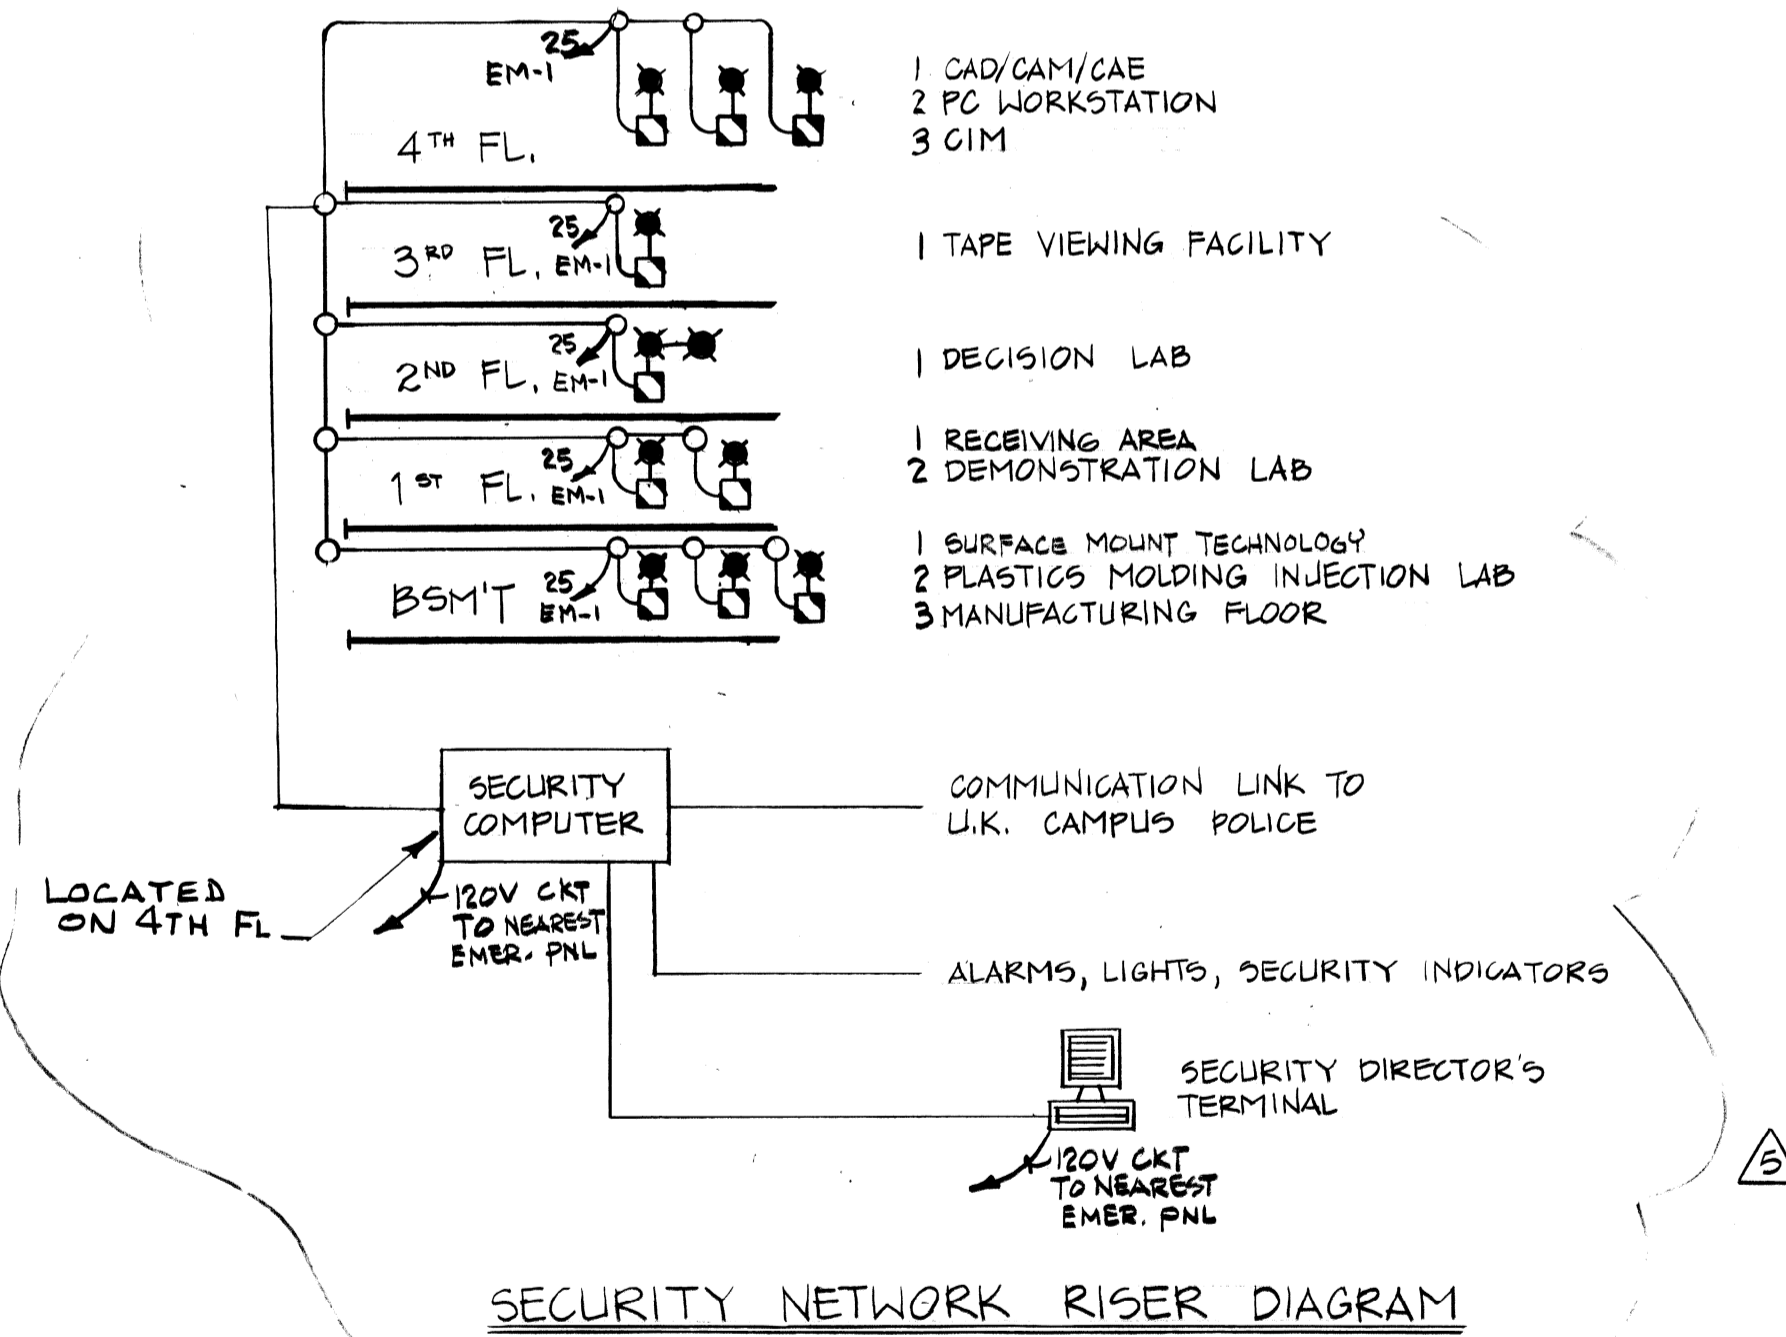 25
EM-1
4TH FL.
1 CAD/CAM/CAE
2 PC WORKSTATION
3 CIM
25
3RD FL. EM-1
1 TAPE VIEWING FACILITY
25
2ND FL. EM-1
1 DECISION LAB
25
1ST FL. EM-1
1 RECEIVING AREA
2 DEMONSTRATION LAB
25
BSM'T EM-1
1 SURFACE MOUNT TECHNOLOGY
2 PLASTICS MOLDING INJECTION LAB
3 MANUFACTURING FLOOR
SECURITY
COMPUTER
COMMUNICATION LINK TO
U.K. CAMPUS POLICE
LOCATED
ON 4TH FL
120V CKT
TO NEAREST
EMER. PNL
ALARMS, LIGHTS, SECURITY INDICATORS
SECURITY DIRECTOR'S
TERMINAL
120V CKT
TO NEAREST
EMER. PNL
5
SECURITY NETWORK RISER DIAGRAM